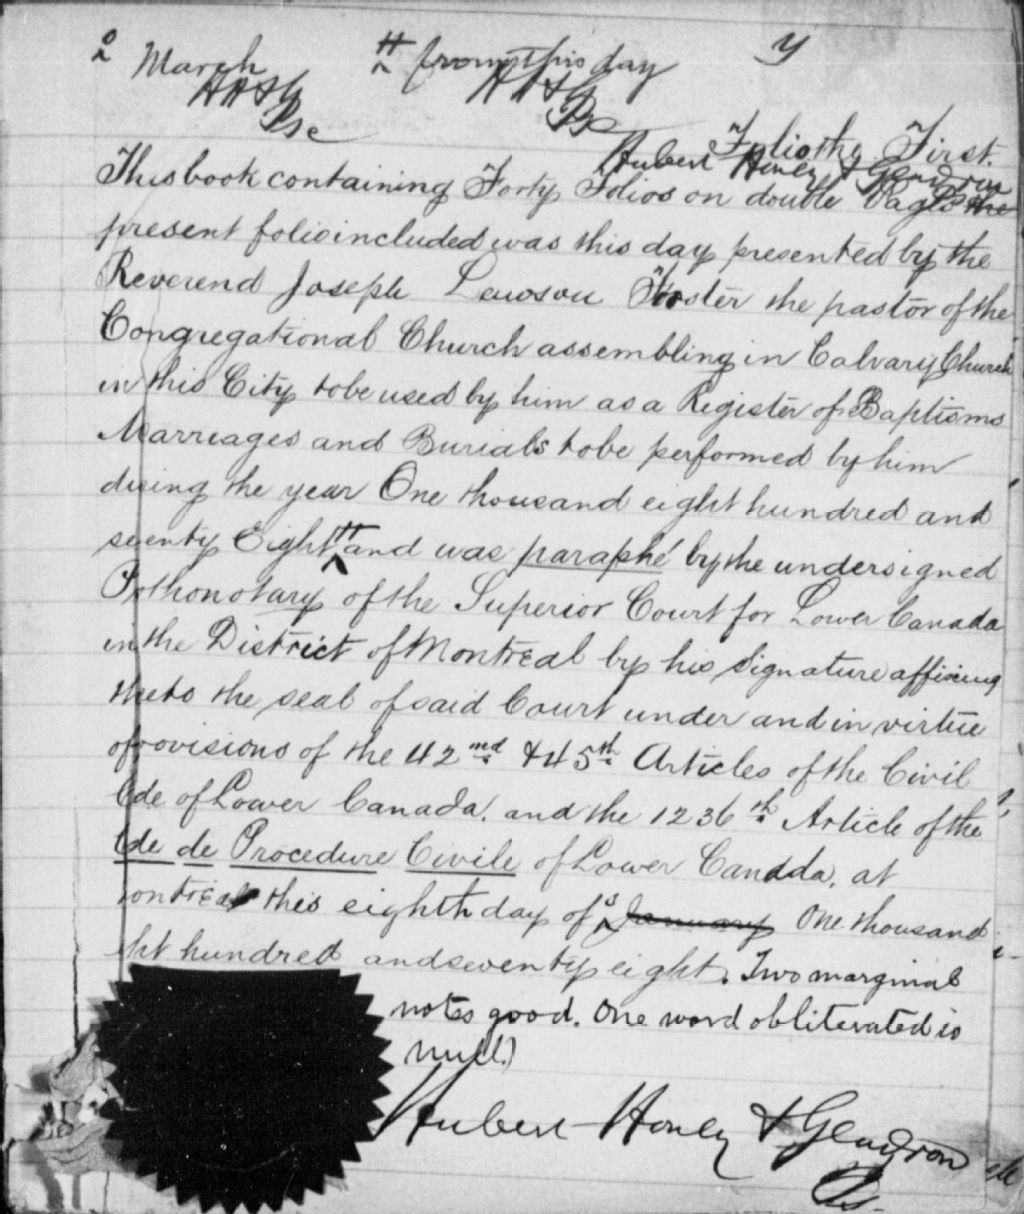 March from this day
HH&G HH&G
Folio the First.
Hubert Honey & Gendron
This book containing Forty Folios on double Pages the
present folio included was this day presented by the
Reverend Joseph Lawson Foster the pastor of the
Congregational Church assembling in Calvary Church
in this City to be used by him as a Register of Baptisms
Marriages and Burials to be performed by him
during the year One thousand eight hundred and
seventy Eight # and was paraphé by the undersigned
Prothonotary of the Superior Court for Lower Canada
in the District of Montreal by his Signature affixing
thereto the seal of said Court under and in virtue
of provisions of the 42nd & 45th Articles of the Civil
Code of Lower Canada, and the 1236th Article of the
Code de Procedure Civile of Lower Canada, at
ontreal this eighth day of January One thousand
ght hundred and seventy eight. Two marginal
notes good. One word obliterated is
null.)
Hubert Honey & Gendron